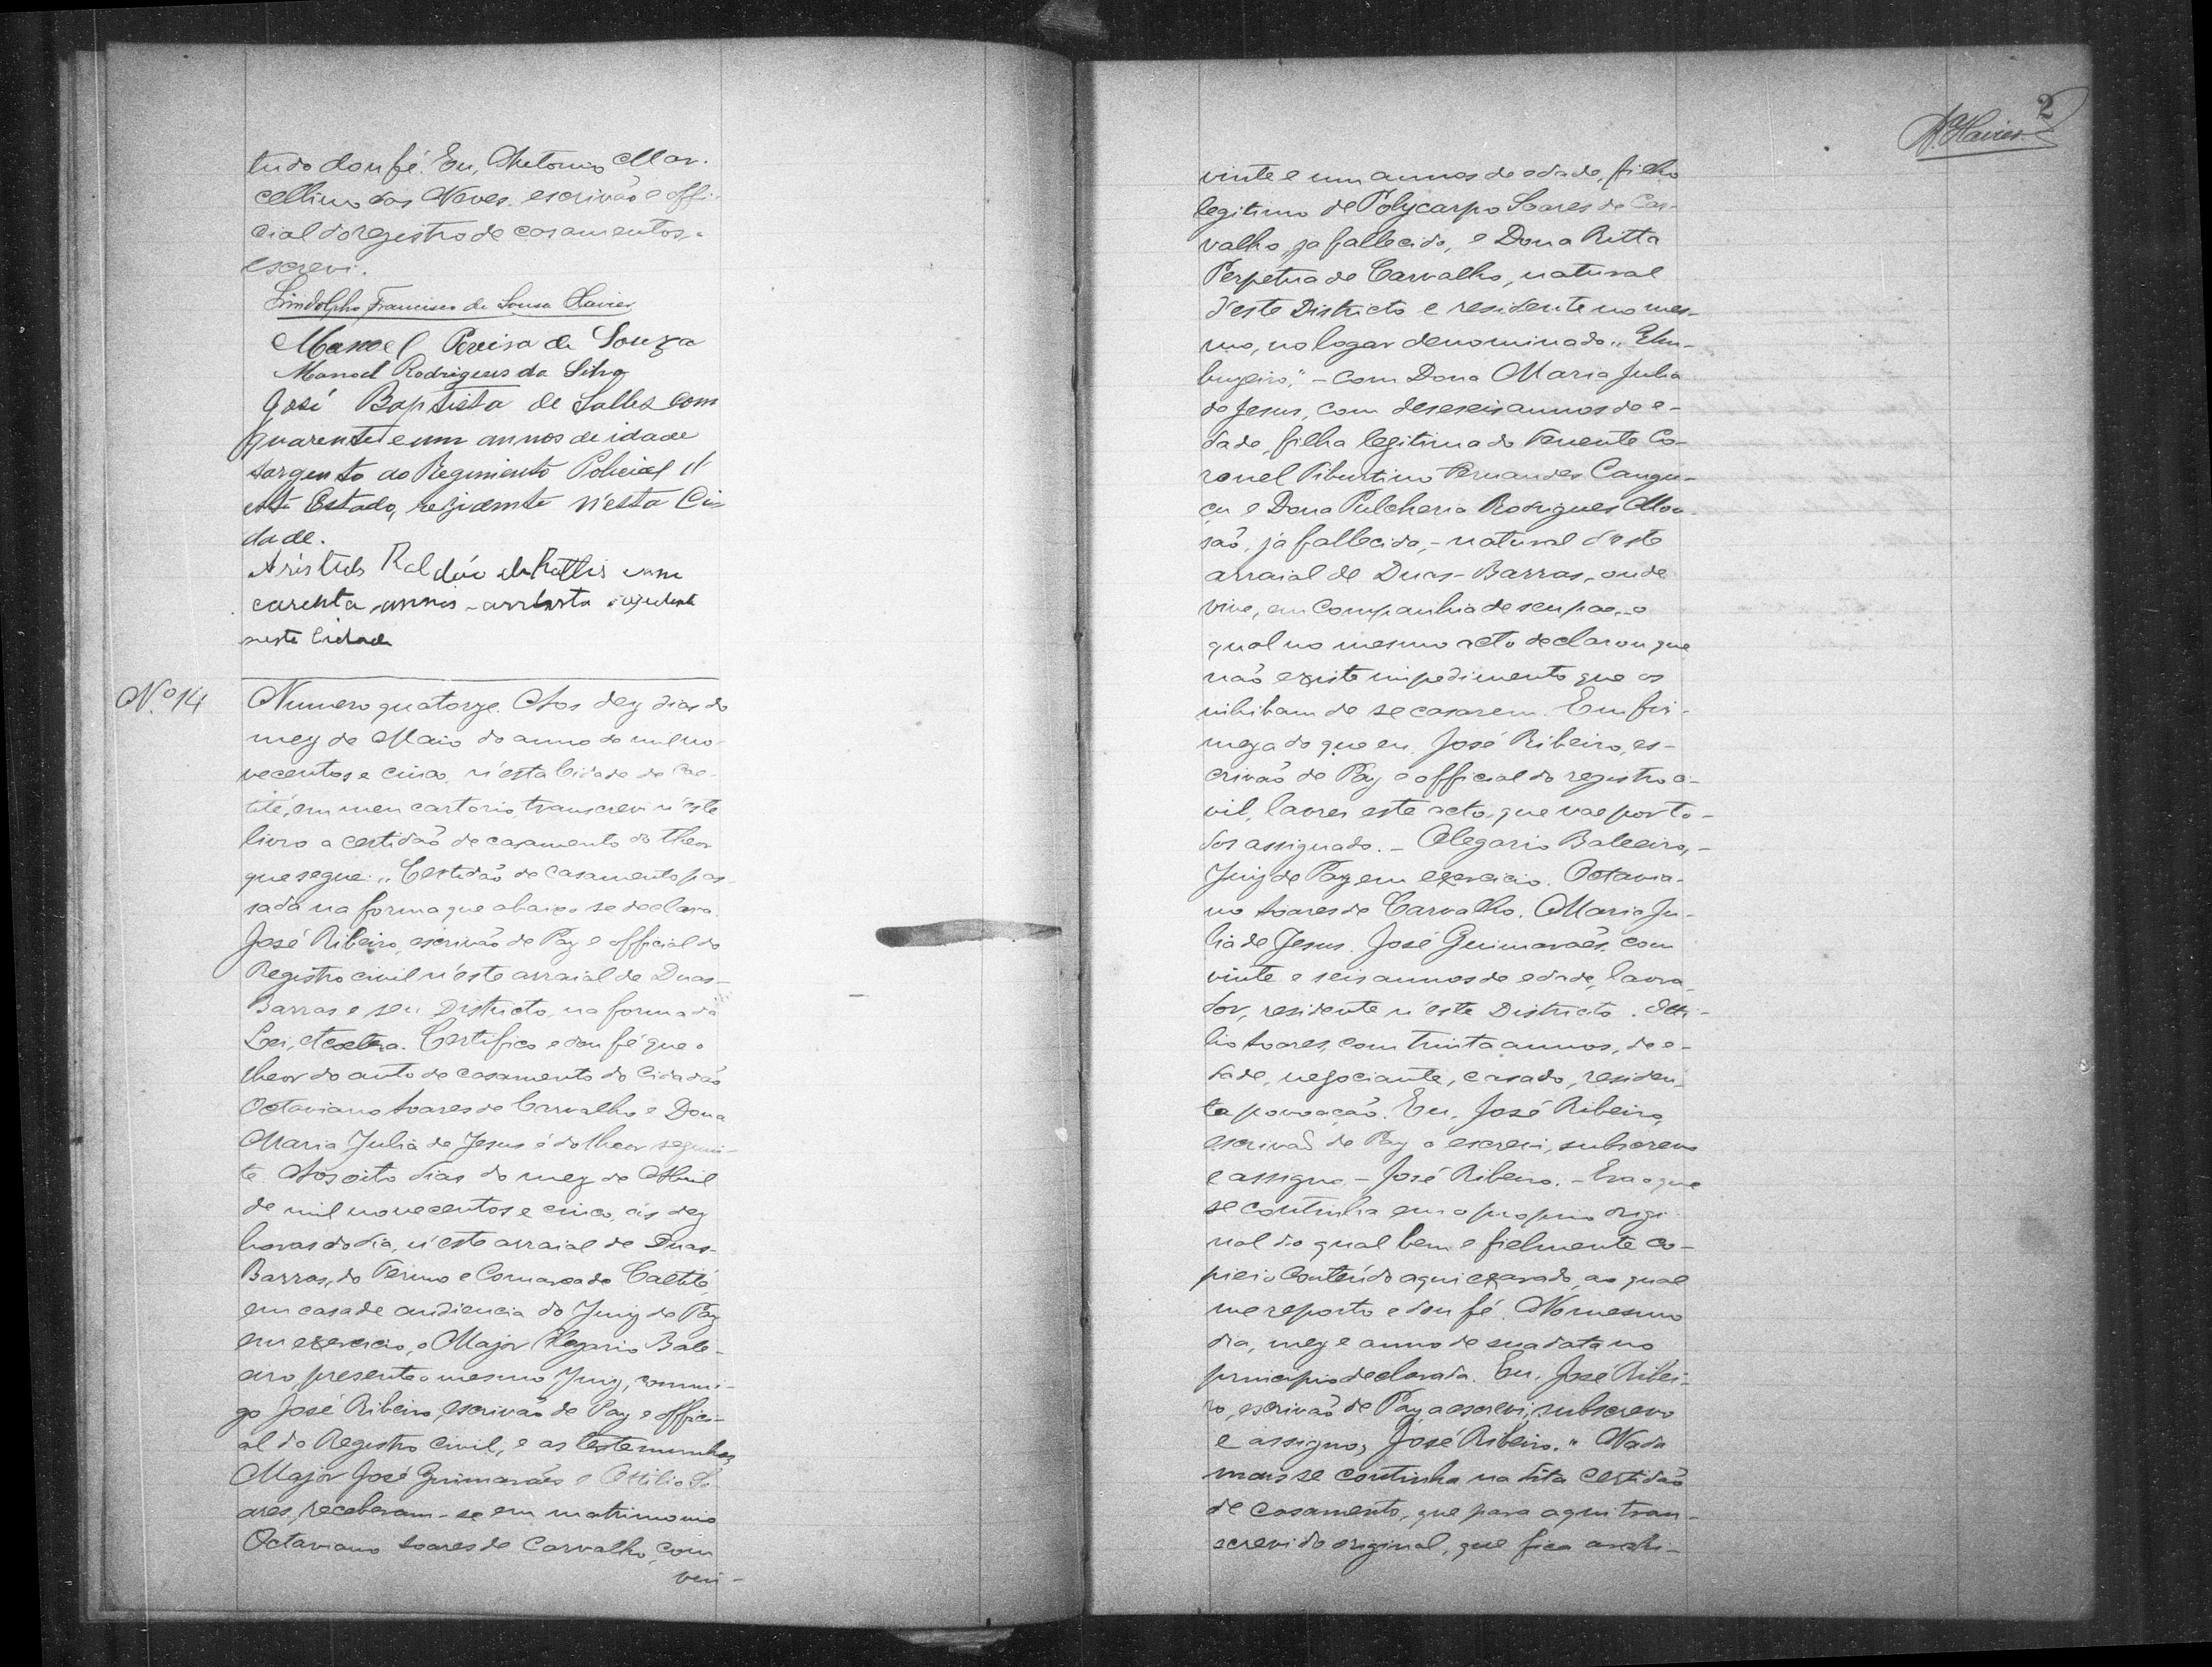 tudo dou fé. Eu, Antonio Mar-
cellino das Neves, escrivão e offi-
cial do registro de casamentos,
escrevi.
Lindolpho Francisco de Sousa Xavier
Manoel Pereira de Souza
Manoel Rodrigues da Silva
José Baptista de Salles com
quarenta e um annos de idade
sargento do Regimento Policial d'
este Estado, rezidente n'esta Ci-
dade.
Aristides
carenta annos
nesta Cidade
Nº 14
Numero quatorze. Aos dez dias do
mez de Maio do anno de mil no-
vecentos e cinco, n'esta Cidade de Cae-
tité, em meu cartorio, transcrevi n'este
livro a certidão de casamento do theor
que segue: „Certidão de casamento pas-
sada na forma que abaixo se declara.
José Ribeiro, escrivão de Paz e official do
Registro civil n'este arraial de Duas-
Barras e seu Districto, na forma da
Lei, etcetera. Certifico e dou fé que o
theor do auto de casamento do Cidadão
Octaviano Soares de Carvalho e Dona
Maria Julia de Jesus é do theor seguin-
te. Aos oito dias do mez de Abril
de mil novecentos e cinco, ás dez
horas do dia, n'este arraial de Duas-
Barras, do Termo e Comarca de Caetité,
em casa de audiencia do Juiz de Paz
em exercicio, o Major Olegario Bale-
eiro, presente o mesmo Juiz, commi-
go José Ribeiro, escrivão de Paz e offici-
al do Registro Civil, e as testemunhas
Major José Guimarães e Ottilio So-
ares, receberam-se em matrimonio
Octaviano Soares de Carvalho, com
vin-
2
A. Xavier
vinte e um annos de edade, filho
legitimo de Polycarpo Soares de Car-
valho, ja fallecido, e Dona Ritta
Perpetua de Carvalho, natural
d'este Districto e residente no mes-
mo, no logar denominado „Um-
buzeiro," - com Dona Maria Julia
de Jesus, com deseseis annos de e-
dade, filha legitima do Tenente Co-
ronel Tiburtino Fernandes Cangu-
çu e Dona Pulcheria Rodrigues Mon-
são, já fallecida, - natural d'este
arraial de Duas-Barras, onde
vive, em companhia de seu pae, - o
qual no mesmo acto declarou que
não existe impedimento que os
inhibam de se casarem. Em fir-
meza do que eu, José Ribeiro, es-
crivão de Paz e official do registro ci-
vil, lavrei este acto, que vae por to-
dos assignado. - Olegario Baleeiro, -
Juiz de Paz em exercicio. Octavia-
no Soares de Carvalho. Maria Ju-
lia de Jesus. José Guimarães, com
vinte e seis annos de edade, lavra-
dor, residente n'este Districto. Otti-
lio Soares, com trinta annos, de e-
dade, negociante, casado, residen-
ta povoação. Eu, José Ribeiro,
escrivão de Paz o escrevi, subscrevo
e assigno. - José Ribeiro. - Era o que
se continha em o proprio origi-
nal do qual bem e fielmente co-
piei o conteúdo aqui exarado, ao qual
me reporto e dou fé. No mesmo
dia, mez e anno de sua data no
principio declarada. Eu, José Ribei-
ro, escrivão de Paz, a escrevi, subscrevo
e assigno, José Ribeiro." Nada
mais se continha na dita certidão
de casamento, que para aqui tran-
screvi do original, que fica archi-